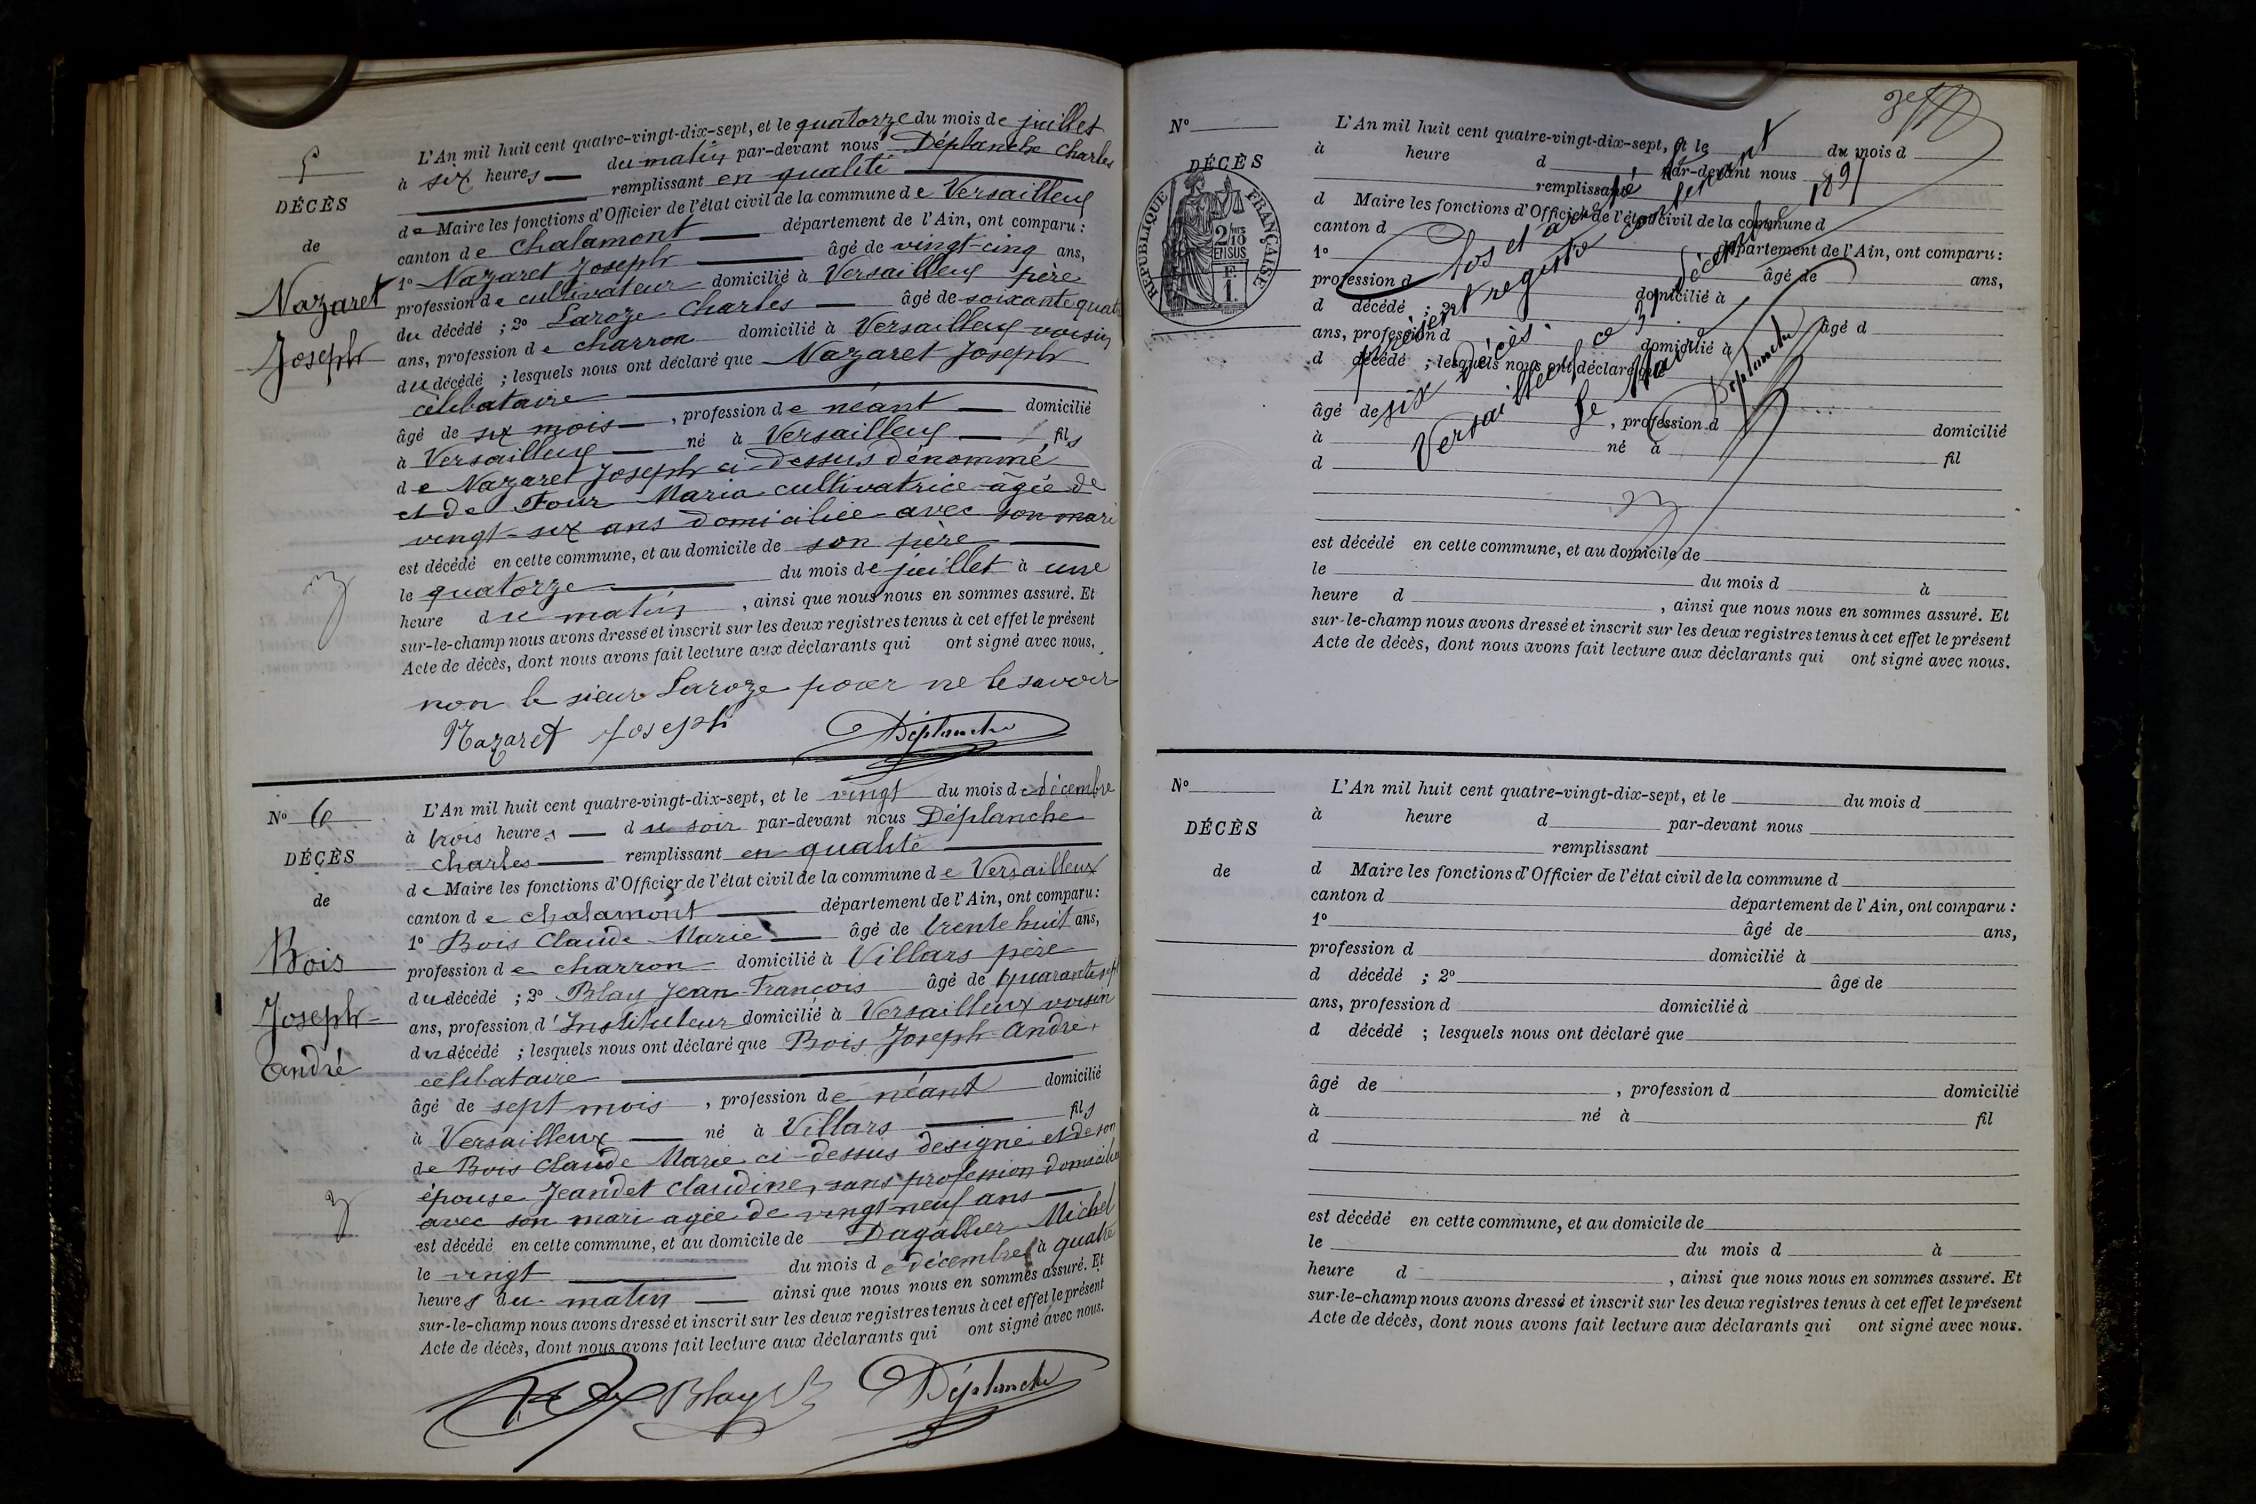 5
DÉCÈS
de
Nazaret
Joseph
L'An mil huit cent quatre-vingt-dix-sept, et le quatorze du mois de juillet
à six heures du matin par-devant nous Déplanche Charles
remplissant en qualité
de Maire les fonctions d'Officier de l'état civil de la commune de Versailleux
canton de Chalamont département de l'Ain, ont comparu :
1º Nazaret Joseph âgé de vingt-cinq ans,
profession de cultivateur domicilié à Versailleux père
du décédé ; 2º Laroze Charles âgé de soixante quatre
ans, profession de charron domicilié à Versailleux voisin
du décédé ; lesquels nous ont déclaré que Nazaret Joseph
célibataire
âgé de six mois, profession de néant domicilié
à Versailleux né à Versailleux fils
de Nazaret Joseph ci-dessus dénommé
et de Four Maria cultivatrice âgée de
vingt-six ans domiciliée avec son mari
est décédé en cette commune, et au domicile de son père
le quatorze du mois de juillet à une
heure du matin, ainsi que nous nous en sommes assuré. Et
sur-le-champ nous avons dressé et inscrit sur les deux registres tenus à cet effet le présent
Acte de décès, dont nous avons fait lecture aux déclarants qui ont signé avec nous.
non le sieur Laroze pour ne le savoir
Nazaret Joseph Déplanche
Nº 6
DÉCÈS
de
Bois
Joseph
André
L'An mil huit cent quatre-vingt-dix-sept, et le vingt du mois de décembre
à trois heures du soir par-devant nous Déplanche
Charles remplissant en qualité
de Maire les fonctions d'Officier de l'état civil de la commune de Versailleux
canton de Chalamont département de l'Ain, ont comparu :
1º Bois Claude Marie âgé de trente huit ans,
profession de charron domicilié à Villars père
du décédé ; 2º Blay Jean François âgé de quarante sept
ans, profession d'Instituteur domicilié à Versailleux voisin
du décédé ; lesquels nous ont déclaré que Bois Joseph André,
célibataire
âgé de sept mois, profession de néant domicilié
à Versailleux né à Villars fils
de Bois Claude Marie ci-dessus désigné et de son
épouse Jeandet Claudine, sans profession domiciliée
avec son mari agée de vingt neuf ans
est décédé en cette commune, et au domicile de Dagallier Michel
le vingt du mois de décembre à quatre
heures du matin ainsi que nous nous en sommes assuré. Et
sur-le-champ nous avons dressé et inscrit sur les deux registres tenus à cet effet le présent
Acte de décès, dont nous avons fait lecture aux déclarants qui ont signé avec nous.
Blay Déplanche
Nº
DÉCÈS
RÉPUBLIQUE FRANÇAISE
2/10 EN SUS
F. 1.
L'An mil huit cent quatre-vingt-dix-sept, et le du mois d
à heure d par-devant nous
remplissant
d Maire les fonctions d'Officier de l'état civil de la commune d
canton d département de l'Ain, ont comparu :
1º âgé de ans,
profession d domicilié à
d décédé ; 2º âgé d
ans, profession d domicilié à
d décédé ; lesquels nous ont déclaré que
âgé de , profession d domicilié
à né à fil
d
Clos et arrêté le
présent registre contenant
six décès.
Versailleux ce 31 décembre 1897
Le Maire
Déplanche
est décédé en cette commune, et au domicile de
le du mois d à
heure d , ainsi que nous nous en sommes assuré. Et
sur-le-champ nous avons dressé et inscrit sur les deux registres tenus à cet effet le présent
Acte de décès, dont nous avons fait lecture aux déclarants qui ont signé avec nous.
Nº
DÉCÈS
de
L'An mil huit cent quatre-vingt-dix-sept, et le du mois d
à heure d par-devant nous
remplissant
d Maire les fonctions d'Officier de l'état civil de la commune d
canton d département de l'Ain, ont comparu :
1º âgé de ans,
profession d domicilié à
d décédé ; 2º âgé de
ans, profession d domicilié à
d décédé ; lesquels nous ont déclaré que
âgé de , profession d domicilié
à né à fil
d
est décédé en cette commune, et au domicile de
le du mois d à
heure d , ainsi que nous nous en sommes assuré. Et
sur-le-champ nous avons dressé et inscrit sur les deux registres tenus à cet effet le présent
Acte de décès, dont nous avons fait lecture aux déclarants qui ont signé avec nous.